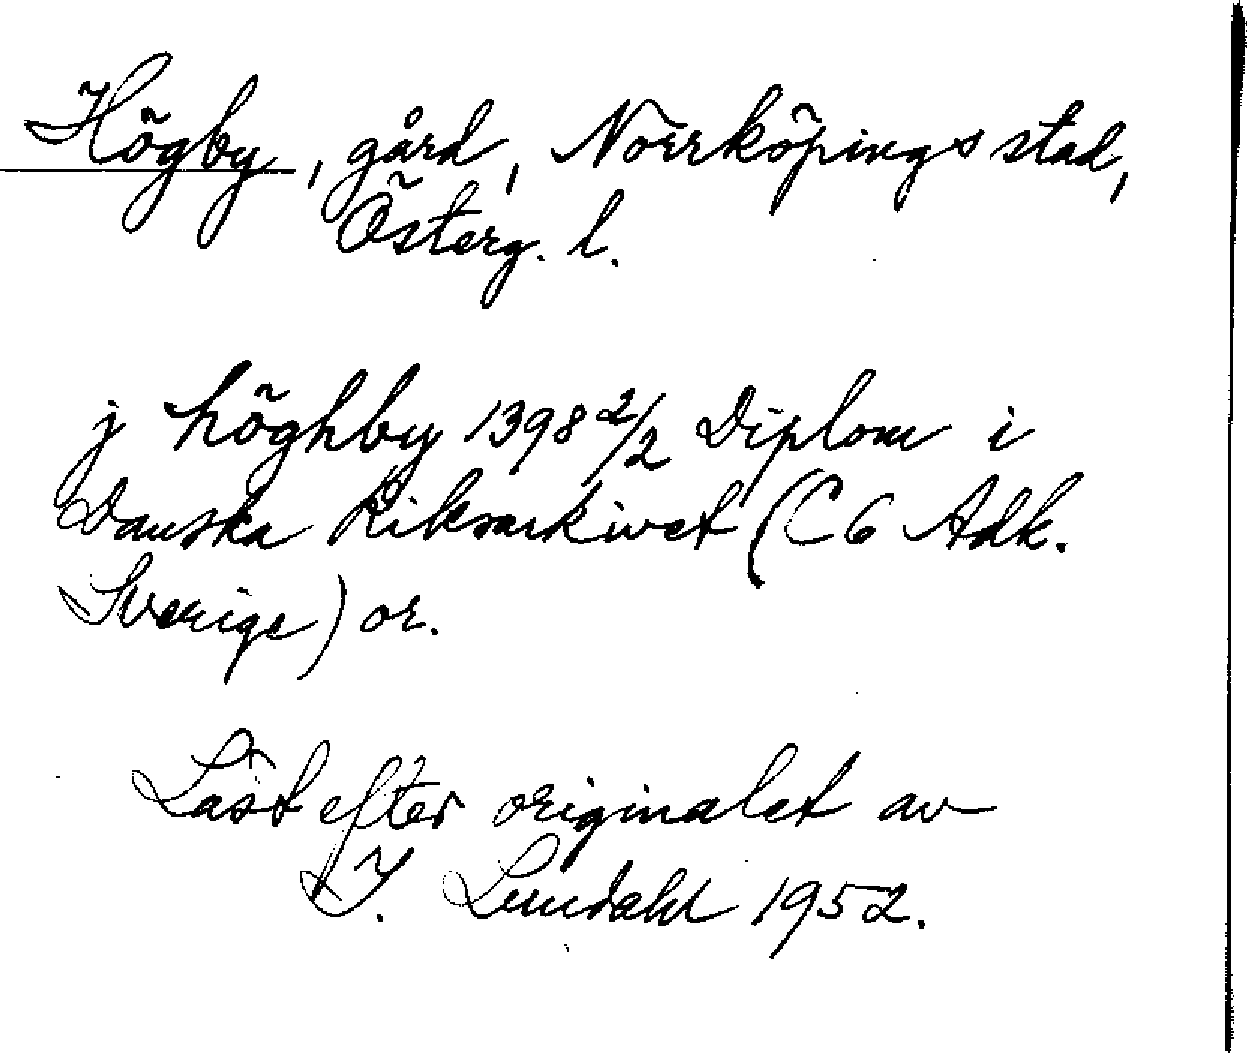 Högby, gård, Norrköpings stad,
Österg. l.
j höghby 1398 2/2 Diplom i
Danska Riksarkivet (C6 Adk.
Sverige) or.
Läst efter originalet av
I. Lundahl 1952.